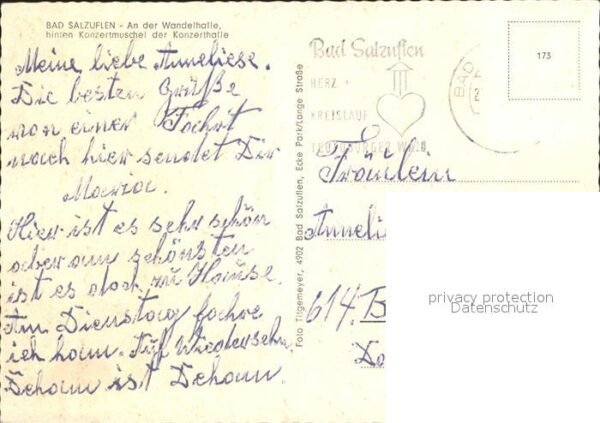 BAD SALZUFLEN - An der Wandelhalle,
hinten Konzertmuschel der Konzerthalle
Meine liebe Anneliese.
Die besten Grüße
von einer Fahrt
nach hier sendet Dir
Maria.
Hier ist es sehr schön
aber am schönsten
ist es doch zu Hause.
Am Dienstag fahre
ich ham. Auf Wiedersehn
Deham ist Deham.
Foto Tilgemeyer, 4902 Bad Salzuflen, Ecke Park/Lange Straße
Bad Salzuflen
HERZ +
KREISLAUF
TEUTOBURGER WALD
BAD
2
173
Fräulein
Anneli
614. B
privacy protection
Datenschutz